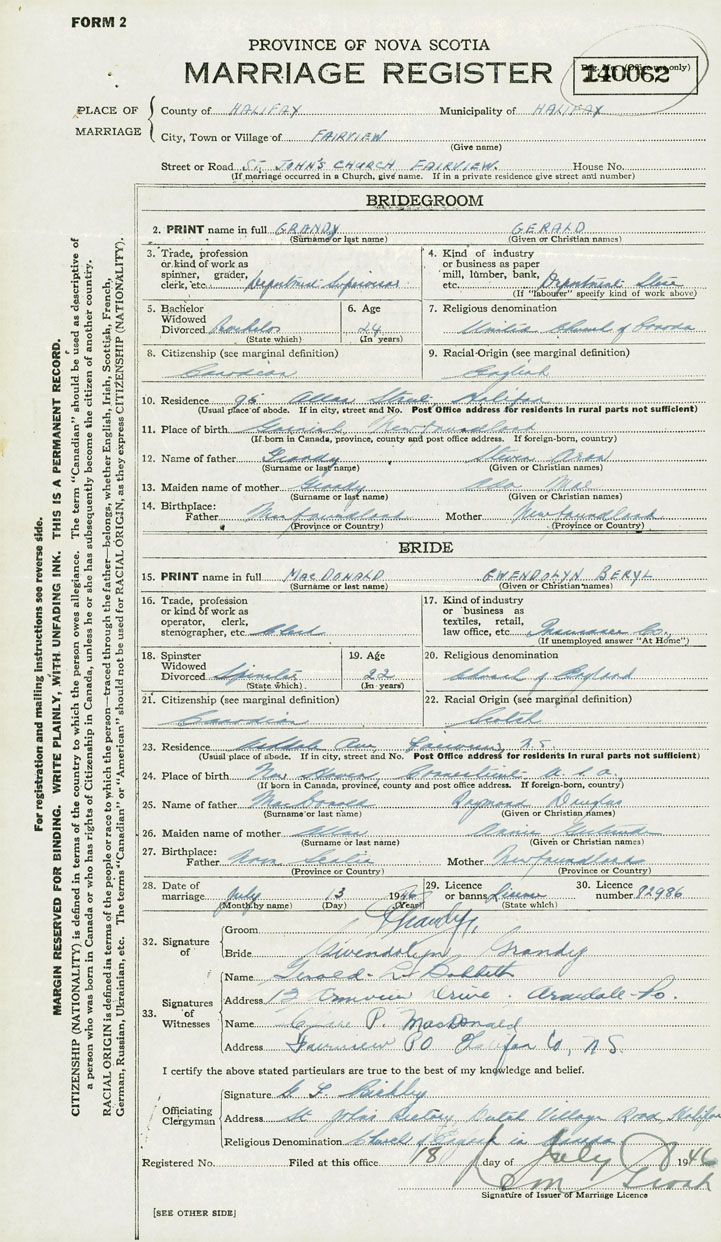 FORM 2
PROVINCE OF NOVA SCOTIA
MARRIAGE REGISTER
Reg. No. (Office use only)
140062
PLACE OF MARRIAGE
County of HALIFAX Municipality of HALIFAX
City, Town or Village of FAIRVIEW
(Give name)
Street or Road ST. JOHN'S CHURCH FAIRVIEW. House No.
(If marriage occurred in a Church, give name. If in a private residence give street and number)
BRIDEGROOM
2. PRINT name in full GRANDY GERALD
(Surname or last name) (Given or Christian names)
3. Trade, profession or kind of work as spinner, grader, clerk, etc. Department Supervisor
4. Kind of industry or business as paper mill, lumber, bank, etc. Department Store
(If "labourer" specify kind of work above)
5. Bachelor Widowed Divorced Bachelor
(State which)
6. Age 24
(In years)
7. Religious denomination United Church of Canada
8. Citizenship (see marginal definition) Canadian
9. Racial-Origin (see marginal definition) English
10. Residence 96 Allan Street, Halifax
(Usual place of abode. If in city, street and No. Post Office address for residents in rural parts not sufficient)
11. Place of birth Garnish, Newfoundland
(If born in Canada, province, county and post office address. If foreign-born, country)
12. Name of father Grandy
(Surname or last name) (Given or Christian names)
13. Maiden name of mother Grandy Mae
(Surname or last name) (Given or Christian names)
14. Birthplace:
Father Newfoundland Mother Newfoundland
(Province or Country) (Province or Country)
BRIDE
15. PRINT name in full MacDONALD GWENDOLYN BERYL
(Surname or last name) (Given or Christian names)
16. Trade, profession or kind of work as operator, clerk, stenographer, etc. Clerk
17. Kind of industry or business as textiles, retail, law office, etc. Insurance Co.
(If unemployed answer "At Home")
18. Spinster Widowed Divorced Spinster
(State which)
19. Age 22
(In years)
20. Religious denomination Church of England
21. Citizenship (see marginal definition) Canadian
22. Racial Origin (see marginal definition) Scotch
23. Residence Ave, Fairview, N.S.
(Usual place of abode. If in city, street and No. Post Office address for residents in rural parts not sufficient)
24. Place of birth New Haven Connecticut U.S.A.
(If born in Canada, province, county and post office address. If foreign-born, country)
25. Name of father MacDonald Raymond Douglas
(Surname or last name) (Given or Christian names)
26. Maiden name of mother
(Surname or last name) (Given or Christian names)
27. Birthplace:
Father Nova Scotia Mother Newfoundland
(Province or Country) (Province or Country)
28. Date of marriage July 13 1946
(Month by name) (Day) (Year)
29. Licence or banns License
(State which)
30. Licence number 82986
32. Signature of
Groom Grandy
Bride Gwendolyn Grandy
33. Signatures of Witnesses
Name Gerald
Address Drive. Armdale P.O.
Name P. MacDonald
Address Fairview PO Halifax Co, N.S.
I certify the above stated particulars are true to the best of my knowledge and belief.
Officiating Clergyman
Signature
Address St John's Rectory, Dutch Village Road, Halifax
Religious Denomination Church of England in Canada
Registered No. Filed at this office 18 day of July 1946
Signature of Issuer of Marriage Licence
[SEE OTHER SIDE]
For registration and mailing instructions see reverse side.
MARGIN RESERVED FOR BINDING. WRITE PLAINLY, WITH UNFADING INK. THIS IS A PERMANENT RECORD.
CITIZENSHIP (NATIONALITY) is defined in terms of the country to which the person owes allegiance. The term "Canadian" should be used as descriptive of
a person who was born in Canada or who has rights of Citizenship in Canada, unless he or she has subsequently become the citizen of another country.
RACIAL ORIGIN is defined in terms of the people or race to which the person—traced through the father—belongs, whether English, Irish, Scottish, French,
German, Russian, Ukrainian, etc. The terms "Canadian" or "American" should not be used for RACIAL ORIGIN, as they express CITIZENSHIP (NATIONALITY).